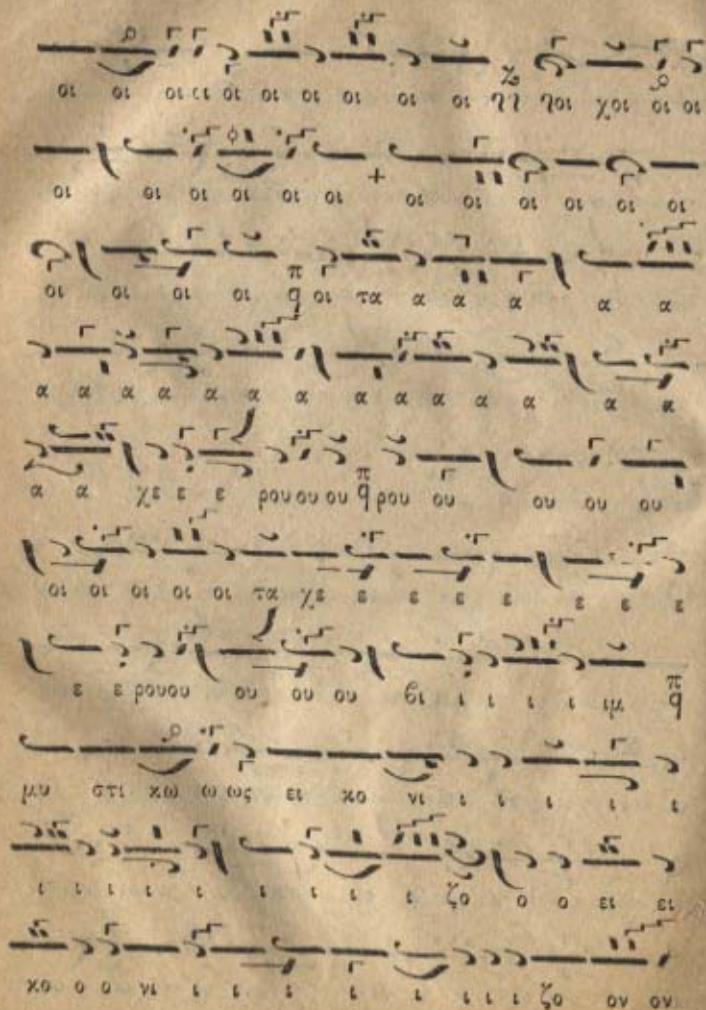 οι οι οι οι οι οι οι οι οι οι γγ γοι χοι οι οι
οι οι οι οι οι οι οι οι οι οι οι οι
οι οι οι οι π q οι τα α α α α α
α α α α α α α α α α α α α α
α α χε ε ε ρου ου ου π q ρου ου ου ου ου
οι οι οι οι οι τα χε ε ε ε ε ε ε ε
ε ε ρουου ου ου ου βι ι ι ι ι ιμ π q
μυ στι κω ω ως ει κο νι ι ι ι ι ι
ι ι ι ι ι ι ι ι ι ζο ο ο ει ει
κο ο ο νι ι ι ι ι ι ι ι ι ζο ον ον